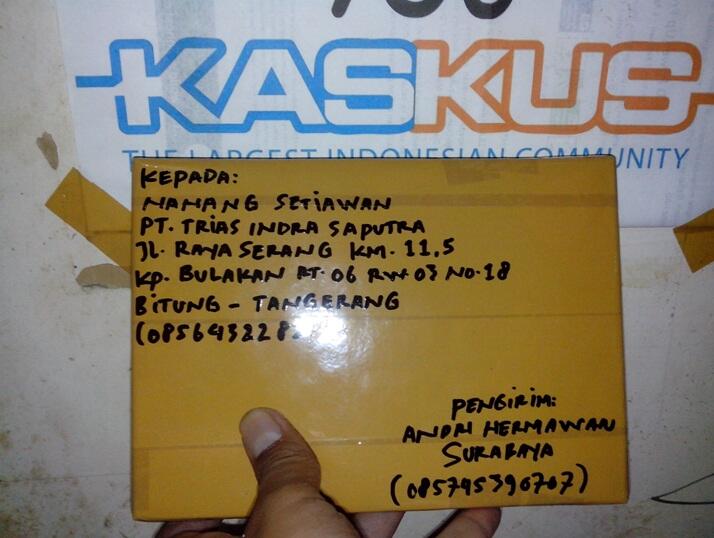 KASKUS
THE LARGEST INDONESIAN COMMUNITY
KEPADA:
NANANG SETIAWAN
PT. TRIAS INDRA SAPUTRA
Jl. RAYA SERANG KM. 11,5
Kp. BULAKAN RT. 06 RW 03 NO. 18
BITUNG - TANGERANG
PENGIRIM:
ANDRI HERMAWAN
SURABAYA
(085745390707)